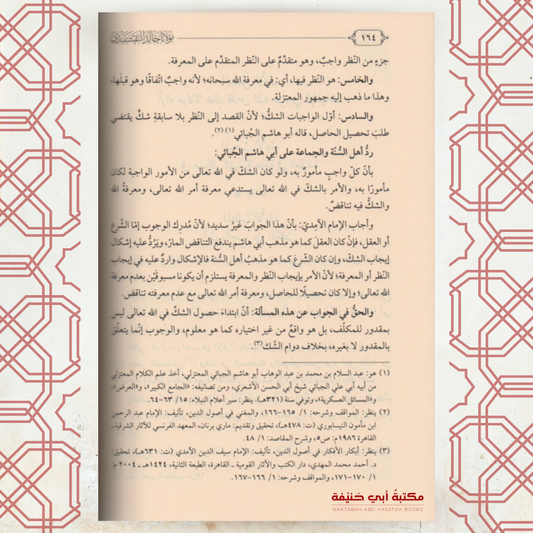 ١٦٤
جزءٍ من النّظر واجبٌ، وهو متقدّمٌ على النّظر المتقدّم على المعرفة.
والخامس: هو النّظر فيها، أي: في معرفة الله سبحانه؛ لأنه واجبٌ اتّفاقًا وهو قبلَها،
وهذا ما ذهب إليه جمهور المعتزلة.
والسادس: أوّل الواجبات الشكُّ؛ لأنّ القصد إلى النّظر بلا سابقةِ شكٍّ يقتضي
طلبَ تحصيل الحاصل، قاله أبو هاشم الجُبائي(١)(٢).
ردُّ أهل السُّنة والجماعة على أبي هاشم الجُبائي:
بأنّ كلّ واجبٍ مأمورٌ به، ولو كان الشكّ في الله تعالى من الأمور الواجبة لكان
مأمورًا به، والأمر بالشك في الله تعالى يستدعي معرفة أمر الله تعالى، ومعرفةُ الله
والشكُّ فيه تناقضٌ.
وأجاب الإمام الآمديّ: بأنّ هذا الجوابَ غيرُ سديد؛ لأنّ مُدرِك الوجوب إمّا الشّرعُ
أو العقل، فإنْ كان العقلَ كما هو مذهب أبي هاشم يندفع التناقض المارّ، ويَرُدُّ عليه إشكال
إيجاب الشكّ، وإن كان الشّرعَ كما هو مذهبُ أهل السُّنة فالإشكال واردٌ عليه في إيجاب
النّظر أو المعرفة؛ لأنّ الأمرَ بإيجاب النّظر والمعرفة يستلزم أن يكونا مسبوقَيْن بعدم معرفة
الله تعالى؛ وإلا كان تحصيلًا للحاصل، ومعرفة أمر الله تعالى مع عدم معرفته تناقض.
والحقُّ في الجواب عن هذه المسألة: أنّ ابتداءَ حصول الشكّ في الله تعالى ليس
بمقدور للمكلّف، بل هو واقعٌ من غير اختياره كما هو معلوم، والوجوب إنّما يتعلّق
بالمقدور لا بغيره، بخلاف دوام الشّك(٣).
(١) هو: عبد السلام بن محمد بن عبد الوهاب أبو هاشم الجبائي المعتزلي، أخذ علم الكلام المعتزلي
من أبيه أبي علي الجبائي شيخ أبي الحسن الأشعري، ومن تصانيفه: «الجامع الكبير»، و«العرض»،
و«المسائل العسكرية»، وتوفي سنة (٣٢١هـ). ينظر: سير أعلام النبلاء: ١٥/ ٦٣-٦٤.
(٢) ينظر: المواقف وشرحه: ١/ ١٦٥-١٦٦، والمغني في أصول الدين، تأليف: الإمام عبد الرحمن
ابن مأمون النيسابوري (ت: ٤٧٨هـ)، تحقيق وتقديم: ماري برنان، المعهد الفرنسي للآثار الشرقية -
القاهرة ١٩٨٦م: ص٥، وشرح المقاصد: ١/ ٤٨.
(٣) ينظر: أبكار الأفكار في أصول الدين، تأليف: الإمام سيف الدين الآمدي (ت: ٦٣١هـ)، تحقيق
د. أحمد محمد المهدي، دار الكتب والآثار القومية - القاهرة، الطبعة الثانية، ١٤٢٤هـ - ٢٠٠٤م
١/ ١٧٠-١٧١، والمواقف وشرحه: ١/ ١٦٦-١٦٧.
مكتبة أبي حنيفة
MAKTABAH ABU HANIFAH BOOKS